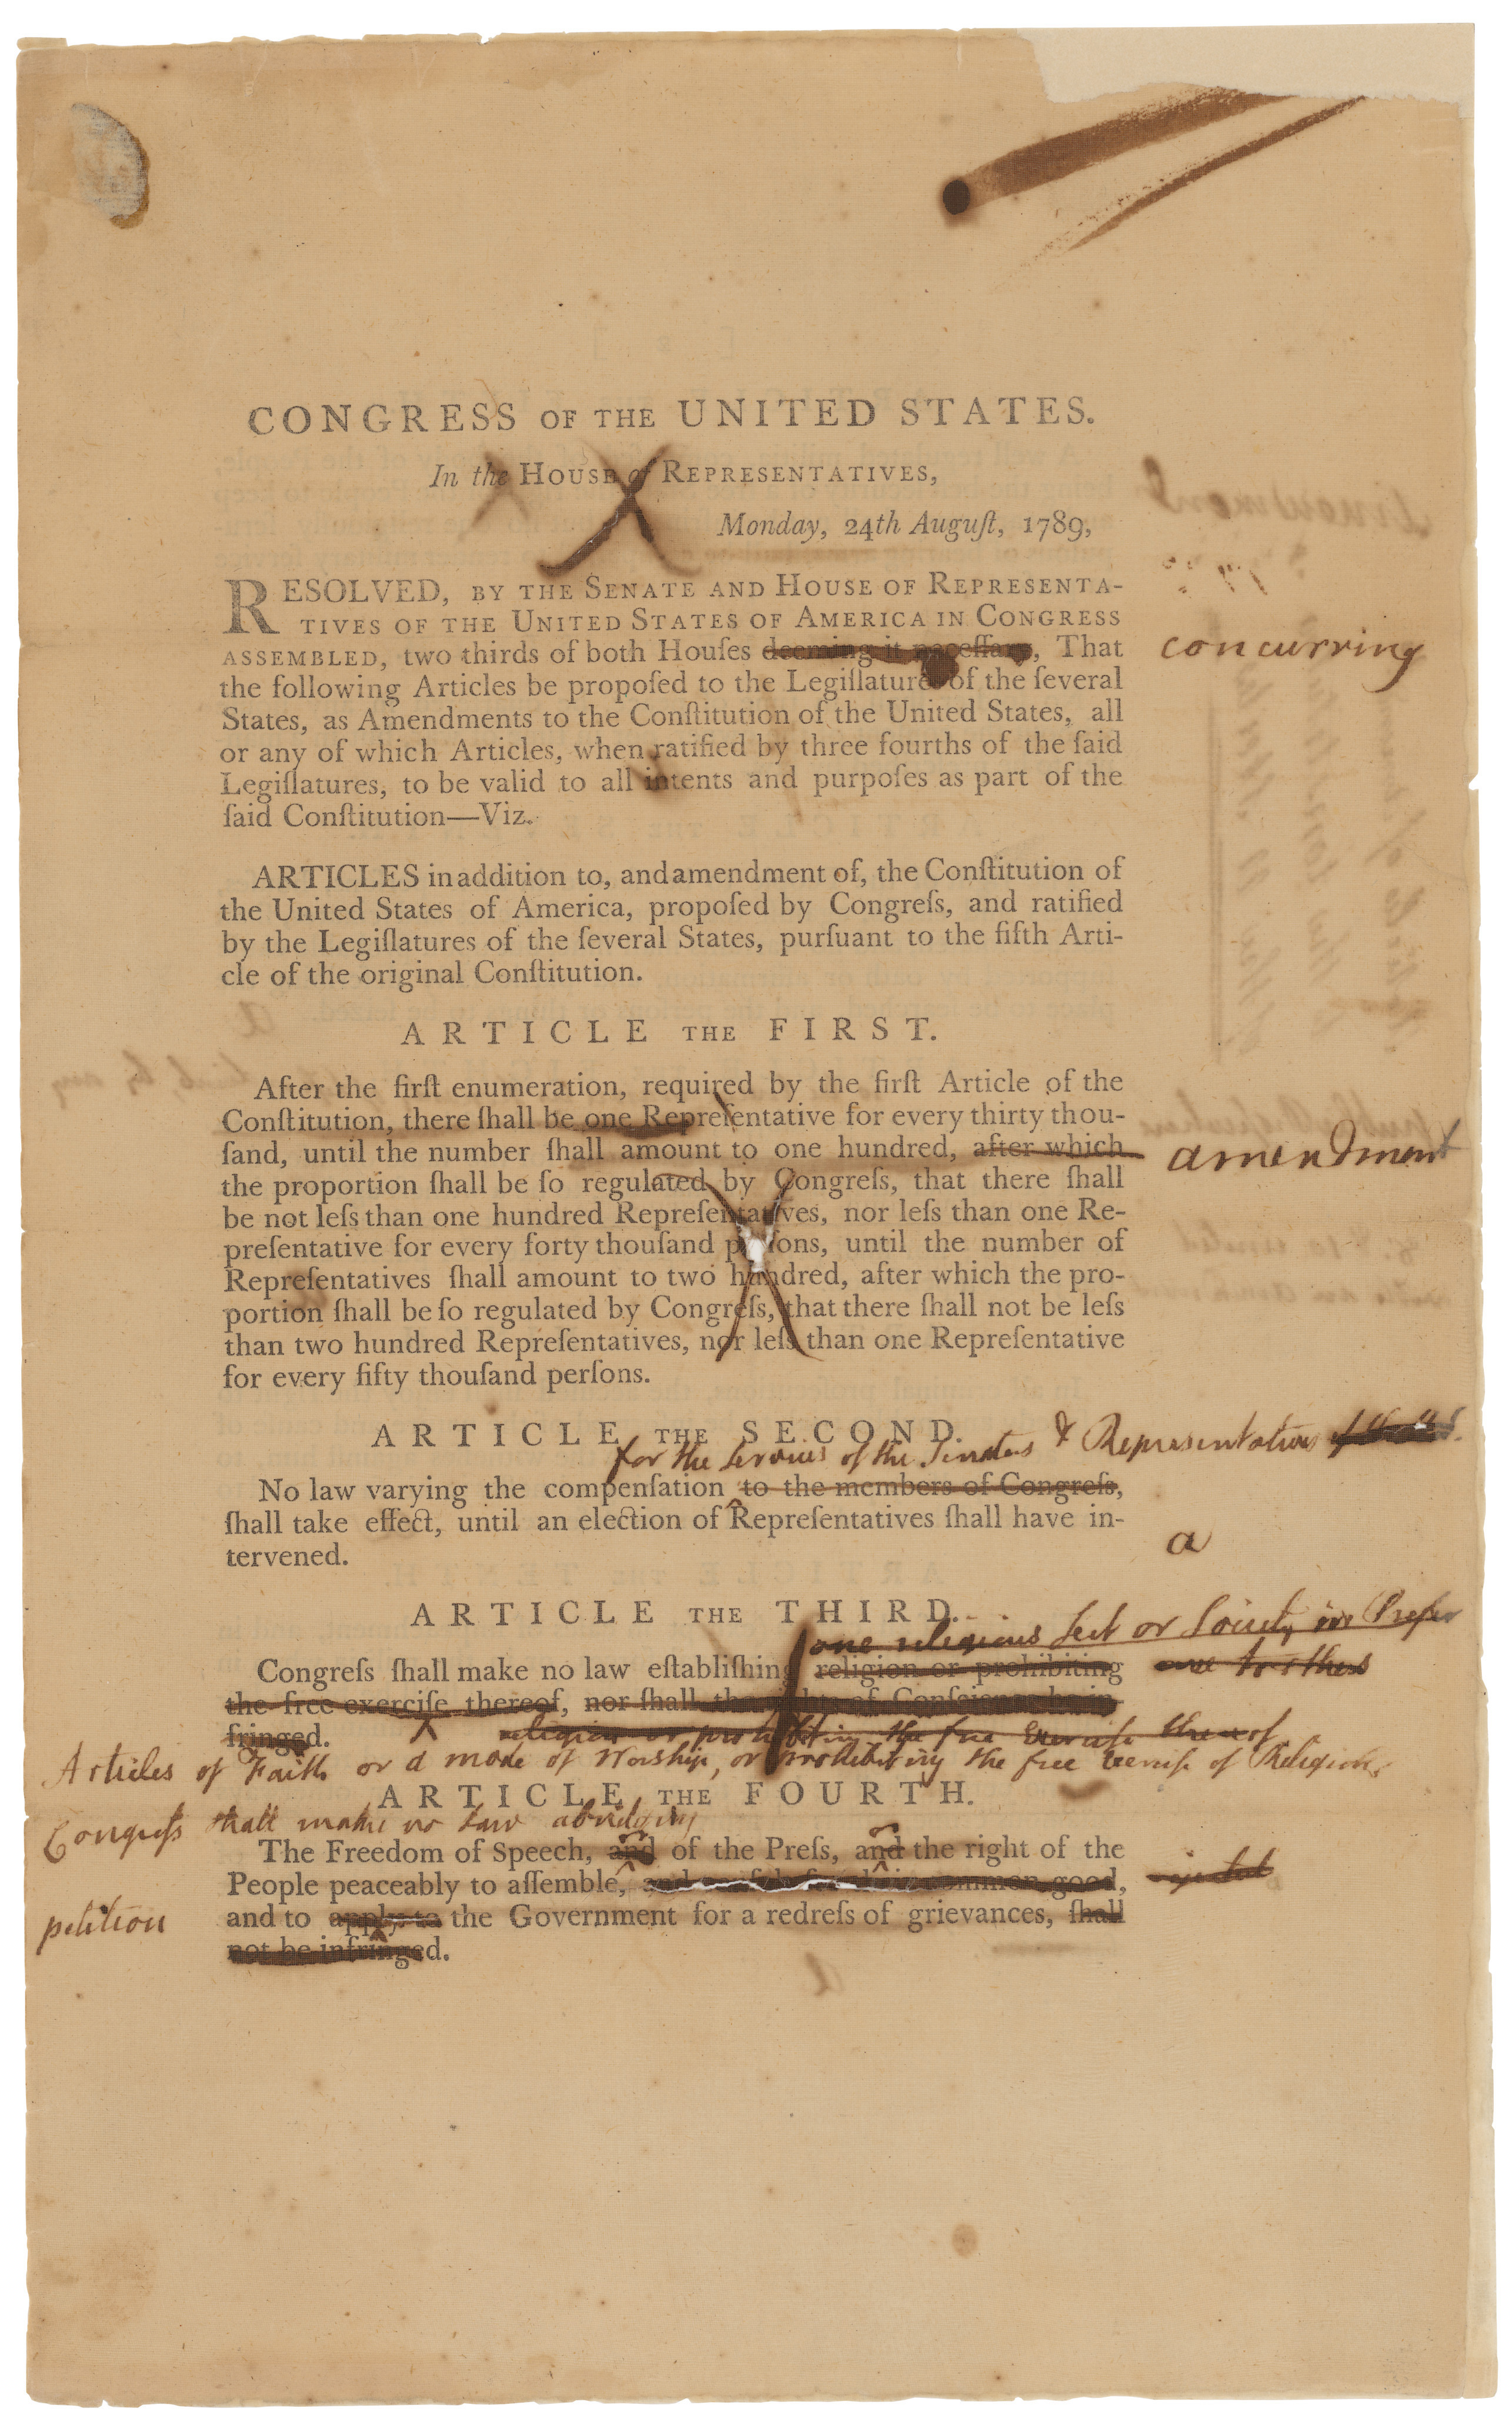 CONGRESS OF THE UNITED STATES.
In the HOUSE of REPRESENTATIVES,
Monday, 24th Auguſt, 1789,
RESOLVED, BY THE SENATE AND HOUSE OF REPRESENTA-
TIVES OF THE UNITED STATES OF AMERICA IN CONGRESS
ASSEMBLED, two thirds of both Houſes deeming it neceſſary, That concurring
the following Articles be propoſed to the Legiſlatures of the ſeveral
States, as Amendments to the Conſtitution of the United States, all
or any of which Articles, when ratified by three fourths of the ſaid
Legiſlatures, to be valid to all intents and purpoſes as part of the
ſaid Conſtitution—Viz.
ARTICLES in addition to, and amendment of, the Conſtitution of
the United States of America, propoſed by Congreſs, and ratified
by the Legiſlatures of the ſeveral States, purſuant to the fifth Arti-
cle of the original Conſtitution.
ARTICLE THE FIRST.
After the firſt enumeration, required by the firſt Article of the
Conſtitution, there ſhall be one Repreſentative for every thirty thou-
ſand, until the number ſhall amount to one hundred, after which amendment
the proportion ſhall be ſo regulated by Congreſs, that there ſhall
be not leſs than one hundred Repreſentatives, nor leſs than one Re-
preſentative for every forty thouſand perſons, until the number of
Repreſentatives ſhall amount to two hundred, after which the pro-
portion ſhall be ſo regulated by Congreſs, that there ſhall not be leſs
than two hundred Repreſentatives, nor leſs than one Repreſentative
for every fifty thouſand perſons.
ARTICLE THE SECOND.
for the services of the Senators & Representatives
No law varying the compenſation to the members of Congreſs,
ſhall take effect, until an election of Repreſentatives ſhall have in-
tervened. a
ARTICLE THE THIRD.
one religious Sect or Society in Prefer
Congreſs ſhall make no law eſtabliſhing religion or prohibiting ence to others
the free exerciſe thereof, nor ſhall the rights of Conſcience be in-
fringed.
religion or prohibiting the free Exercise thereof
Articles of Faith or a mode of Worship, or prohibiting the free exercise of Religion,
ARTICLE THE FOURTH.
Congreſs shall make no law abridging
or or
The Freedom of Speech, and of the Preſs, and the right of the
People peaceably to aſſemble, and conſult for their common good,
petition and to apply to the Government for a redreſs of grievances, ſhall
not be infringed.